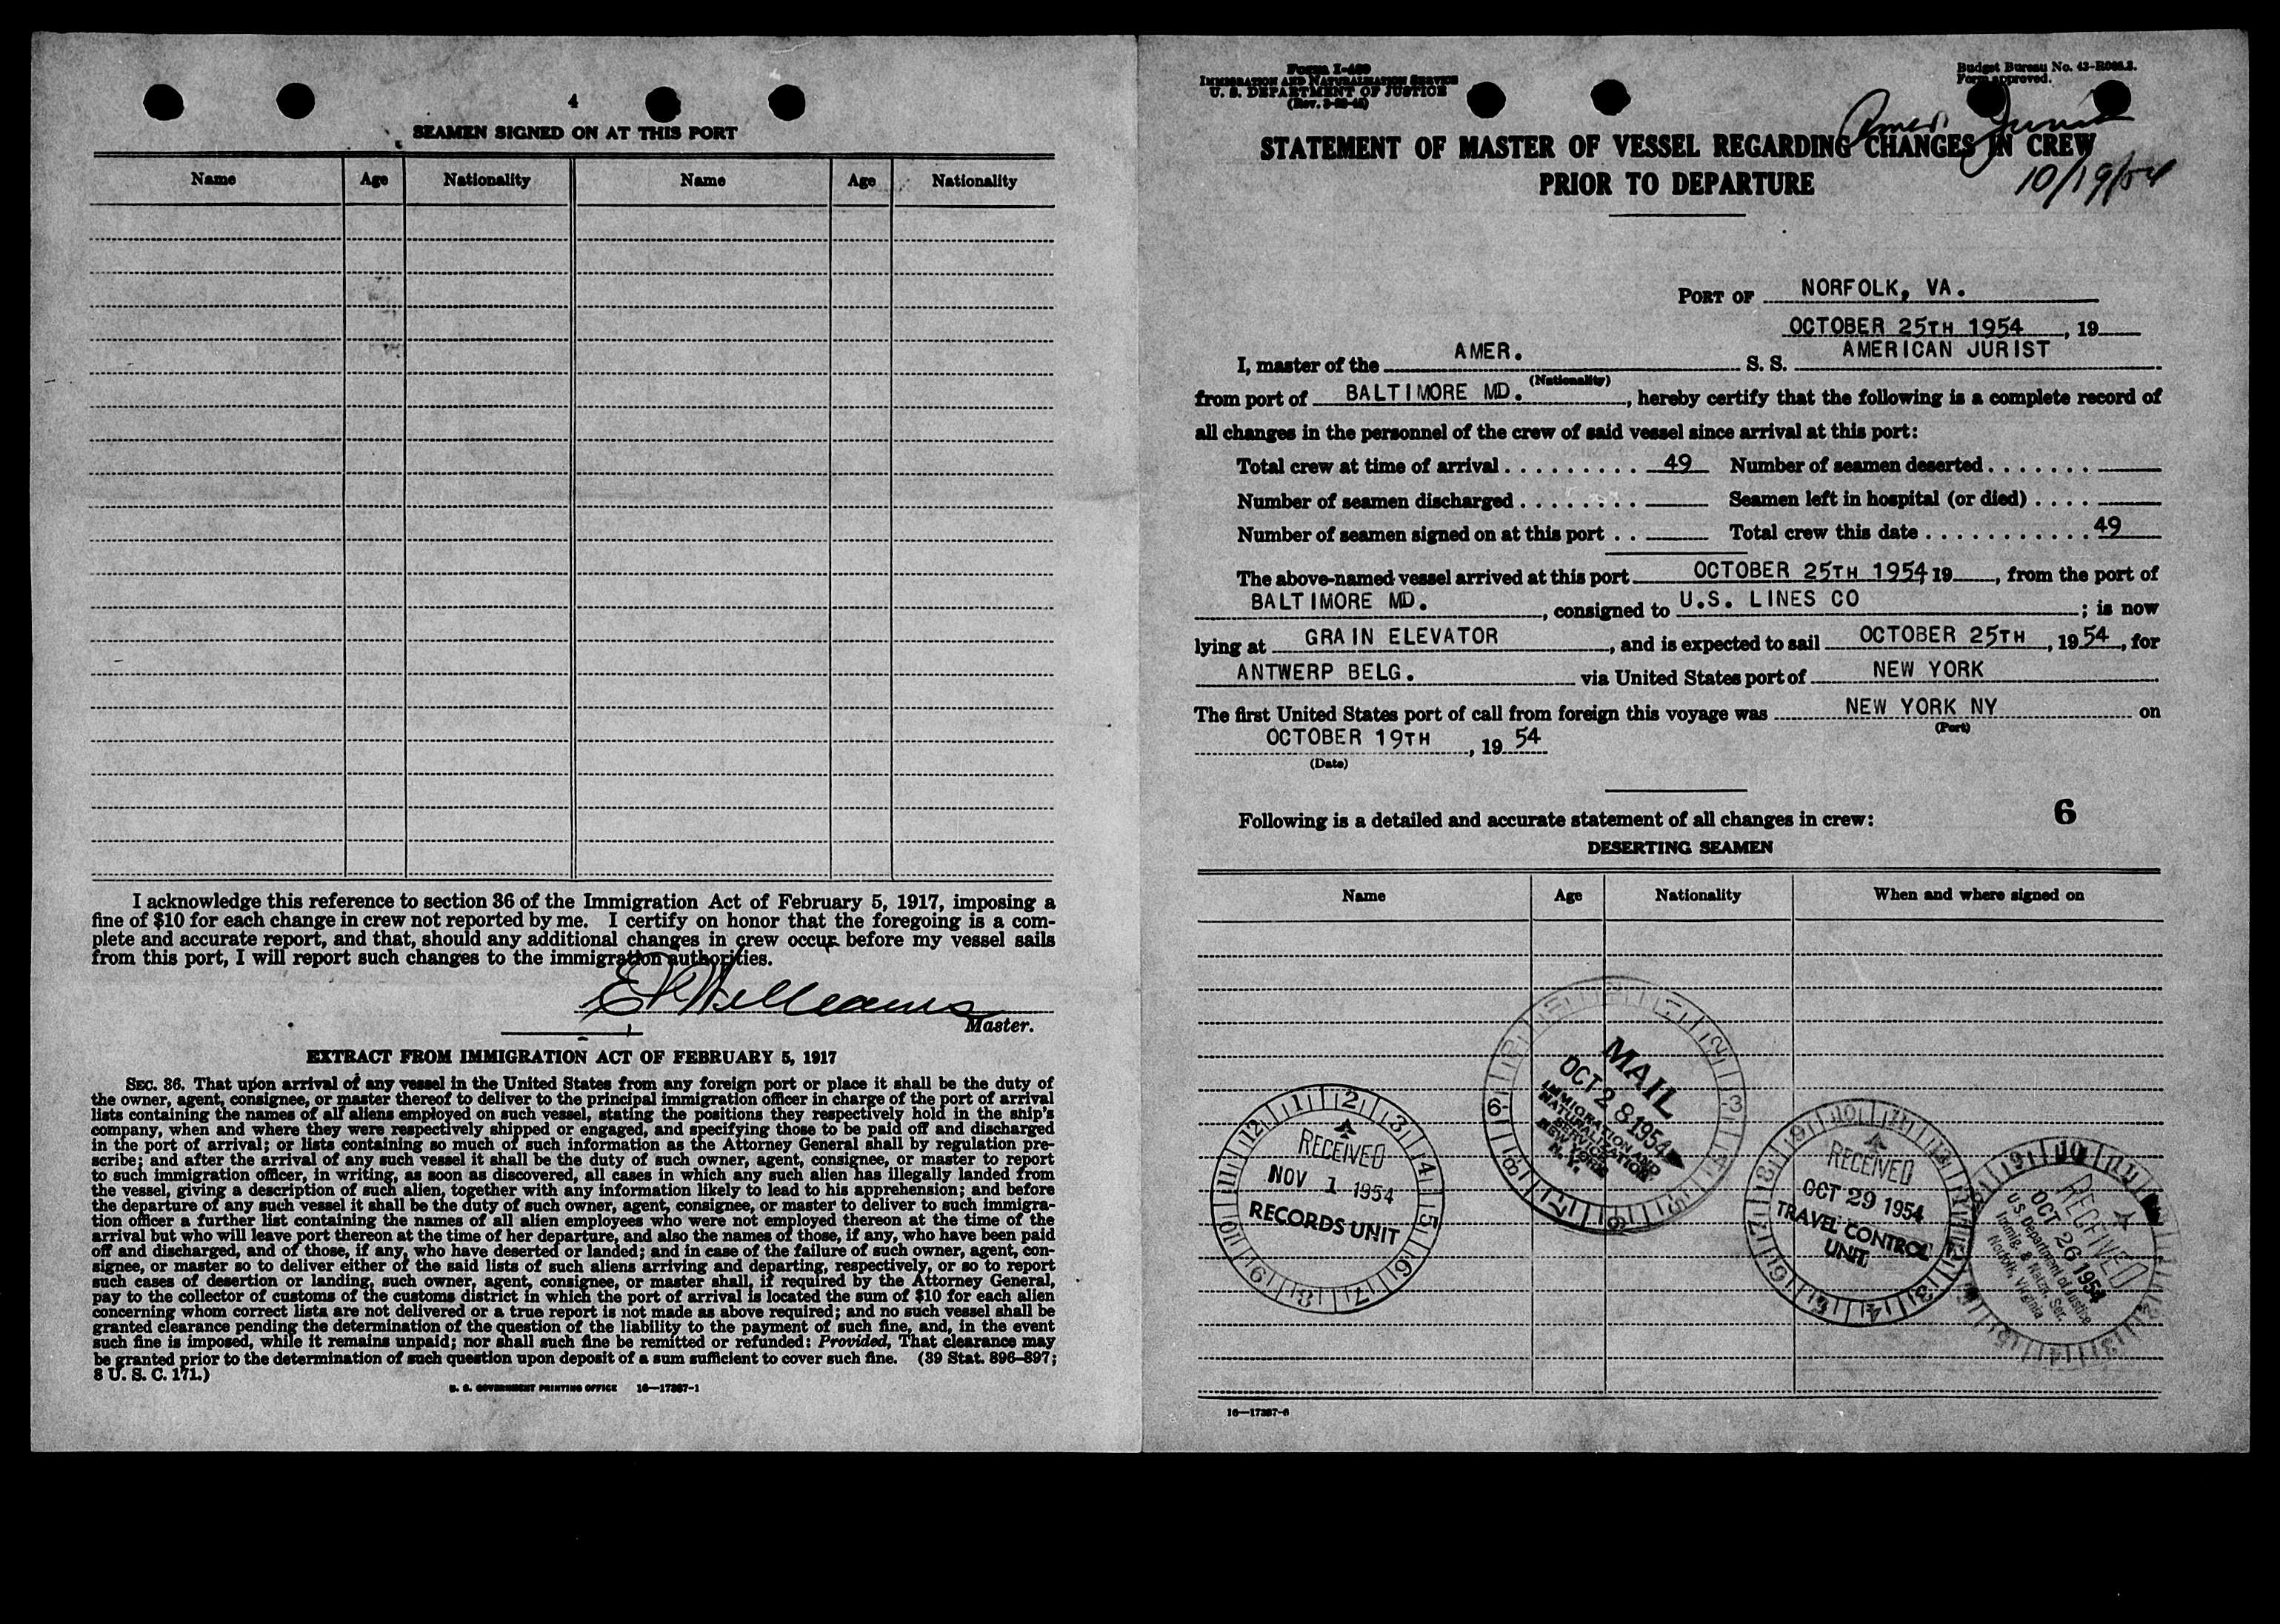 4
SEAMEN SIGNED ON AT THIS PORT
Name Age Nationality Name Age Nationality
I acknowledge this reference to section 36 of the Immigration Act of February 5, 1917, imposing a
fine of $10 for each change in crew not reported by me. I certify on honor that the foregoing is a com-
plete and accurate report, and that, should any additional changes in crew occur before my vessel sails
from this port, I will report such changes to the immigration authorities.
Williams
Master.
EXTRACT FROM IMMIGRATION ACT OF FEBRUARY 5, 1917
SEC. 36. That upon arrival of any vessel in the United States from any foreign port or place it shall be the duty of
the owner, agent, consignee, or master thereof to deliver to the principal immigration officer in charge of the port of arrival
lists containing the names of all aliens employed on such vessel, stating the positions they respectively hold in the ship's
company, when and where they were respectively shipped or engaged, and specifying those to be paid off and discharged
in the port of arrival; or lists containing so much of such information as the Attorney General shall by regulation pre-
scribe; and after the arrival of any such vessel it shall be the duty of such owner, agent, consignee, or master to report
to such immigration officer, in writing, as soon as discovered, all cases in which any such alien has illegally landed from
the vessel, giving a description of such alien, together with any information likely to lead to his apprehension; and before
the departure of any such vessel it shall be the duty of such owner, agent, consignee, or master to deliver to such immigra-
tion officer a further list containing the names of all alien employees who were not employed thereon at the time of the
arrival but who will leave port thereon at the time of her departure, and also the names of those, if any, who have been paid
off and discharged, and of those, if any, who have deserted or landed; and in case of the failure of such owner, agent, con-
signee, or master so to deliver either of the said lists of such aliens arriving and departing, respectively, or so to report
such cases of desertion or landing, such owner, agent, consignee, or master shall, if required by the Attorney General,
pay to the collector of customs of the customs district in which the port of arrival is located the sum of $10 for each alien
concerning whom correct lists are not delivered or a true report is not made as above required; and no such vessel shall be
granted clearance pending the determination of the question of the liability to the payment of such fine, and, in the event
such fine is imposed, while it remains unpaid; nor shall such fine be remitted or refunded: Provided, That clearance may
be granted prior to the determination of such question upon deposit of a sum sufficient to cover such fine. (39 Stat. 896–897;
8 U. S. C. 171.)
U. S. GOVERNMENT PRINTING OFFICE 16—17387-1
IMMIGRATION AND NATURALIZATION SERVICE
U. S. DEPARTMENT OF JUSTICE
Budget Bureau No.
Form approved.
Amer. Jurist
10/19/54
STATEMENT OF MASTER OF VESSEL REGARDING CHANGES IN CREW
PRIOR TO DEPARTURE
PORT OF NORFOLK, VA.
OCTOBER 25TH 1954, 19
I, master of the AMER. S. S. AMERICAN JURIST
(Nationality)
from port of BALTIMORE MD., hereby certify that the following is a complete record of
all changes in the personnel of the crew of said vessel since arrival at this port:
Total crew at time of arrival 49 Number of seamen deserted
Number of seamen discharged Seamen left in hospital (or died)
Number of seamen signed on at this port Total crew this date 49
The above-named vessel arrived at this port OCTOBER 25TH 1954, 19, from the port of
BALTIMORE MD., consigned to U.S. LINES CO; is now
lying at GRAIN ELEVATOR, and is expected to sail OCTOBER 25TH, 1954, for
ANTWERP BELG. via United States port of NEW YORK
The first United States port of call from foreign this voyage was NEW YORK NY on
(Port)
OCTOBER 19TH, 19 54
(Date)
Following is a detailed and accurate statement of all changes in crew: 6
DESERTING SEAMEN
Name Age Nationality When and where signed on
MAIL
OCT 28 1954
IMMIGRATION AND
NATURALIZATION
SERVICE
NEW YORK
N. Y.
RECEIVED
NOV 1 1954
RECORDS UNIT
RECEIVED
OCT 29 1954
TRAVEL CONTROL
UNIT
RECEIVED
OCT 26 1954
U.S. Department of Justice
Immig. & Natzn. Ser.
Norfolk, Virginia